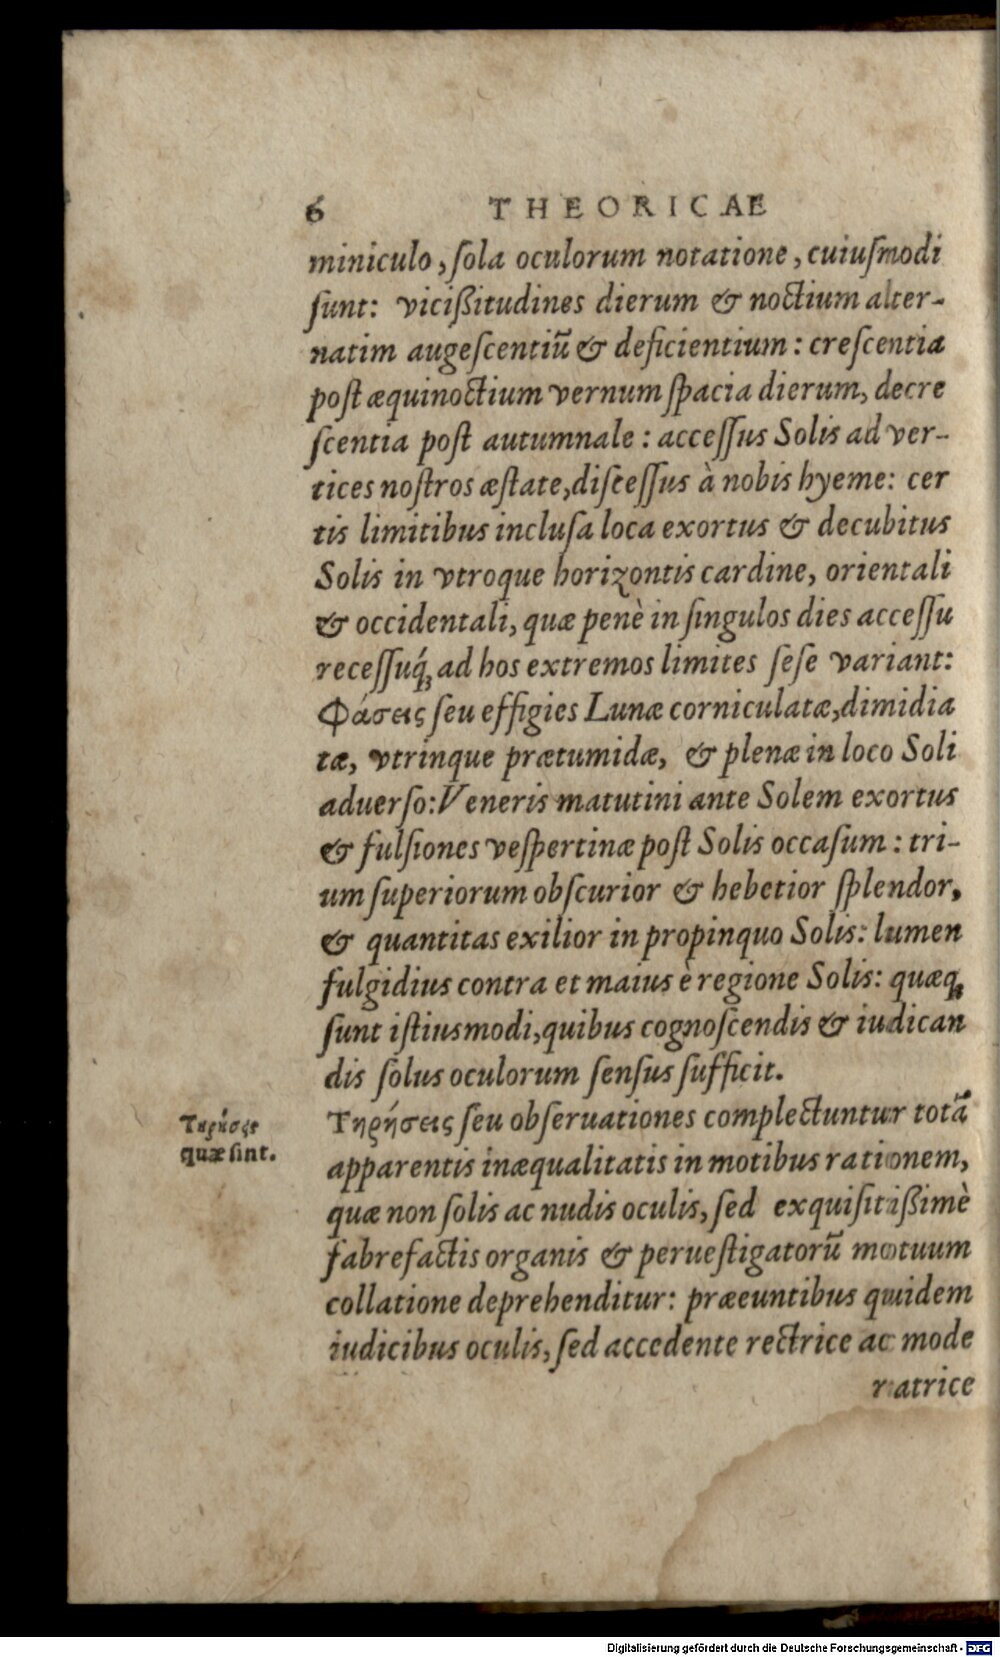 6 THEORICAE
miniculo, ſola oculorum notatione, cuiuſmodi
ſunt: vicißitudines dierum & noctium alter-
natim augeſcentiũ & deficientium: creſcentia
poſt æquinoctium vernum ſpacia dierum, decre
ſcentia poſt autumnale: acceſſus Solis ad ver-
tices noſtros æſtate, diſceſſus à nobis hyeme: cer
tis limitibus incluſa loca exortus & decubitus
Solis in vtroque horizontis cardine, orientali
& occidentali, quæ penè in ſingulos dies acceſſu
receſſuq́ꝫ ad hos extremos limites ſeſe variant:
Φάσεις ſeu effigies Lunæ corniculatæ, dimidia
tæ, vtrinque prætumidæ, & plenæ in loco Soli
aduerſo: Veneris matutini ante Solem exortus
& fulſiones veſpertinæ poſt Solis occaſum: tri-
um ſuperiorum obſcurior & hebetior ſplendor,
& quantitas exilior in propinquo Solis: lumen
fulgidius contra et maius è regione Solis: quæqꝫ
ſunt iſtiusmodi, quibus cognoſcendis & iudican
dis ſolus oculorum ſenſus ſufficit.
Τηρήσεις
quæ ſint.
Τηρήσεις ſeu obſeruationes complectuntur totã
apparentis inæqualitatis in motibus rationem,
quæ non ſolis ac nudis oculis, ſed exquiſitißimè
fabrefactis organis & perueſtigatorũ motuum
collatione deprehenditur: præeuntibus quidem
iudicibus oculis, ſed accedente rectrice ac mode
ratrice
Digitalisierung gefördert durch die Deutsche Forschungsgemeinschaft - DFG